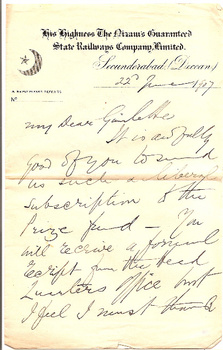 His Highness The Nizam's Guaranteed
State Railways Company, Limited.
Secunderabad, (Deccan)
22nd June 1917
No
My Dear
It is awfully
good of you to send
us such a liberal
subscription to the
Prize fund - You
will receive a formal
receipt from the Head
Quarters Office but
I feel I must thank